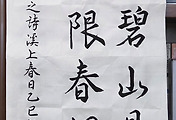 碧山
限春
之詩溪上春日乙巳